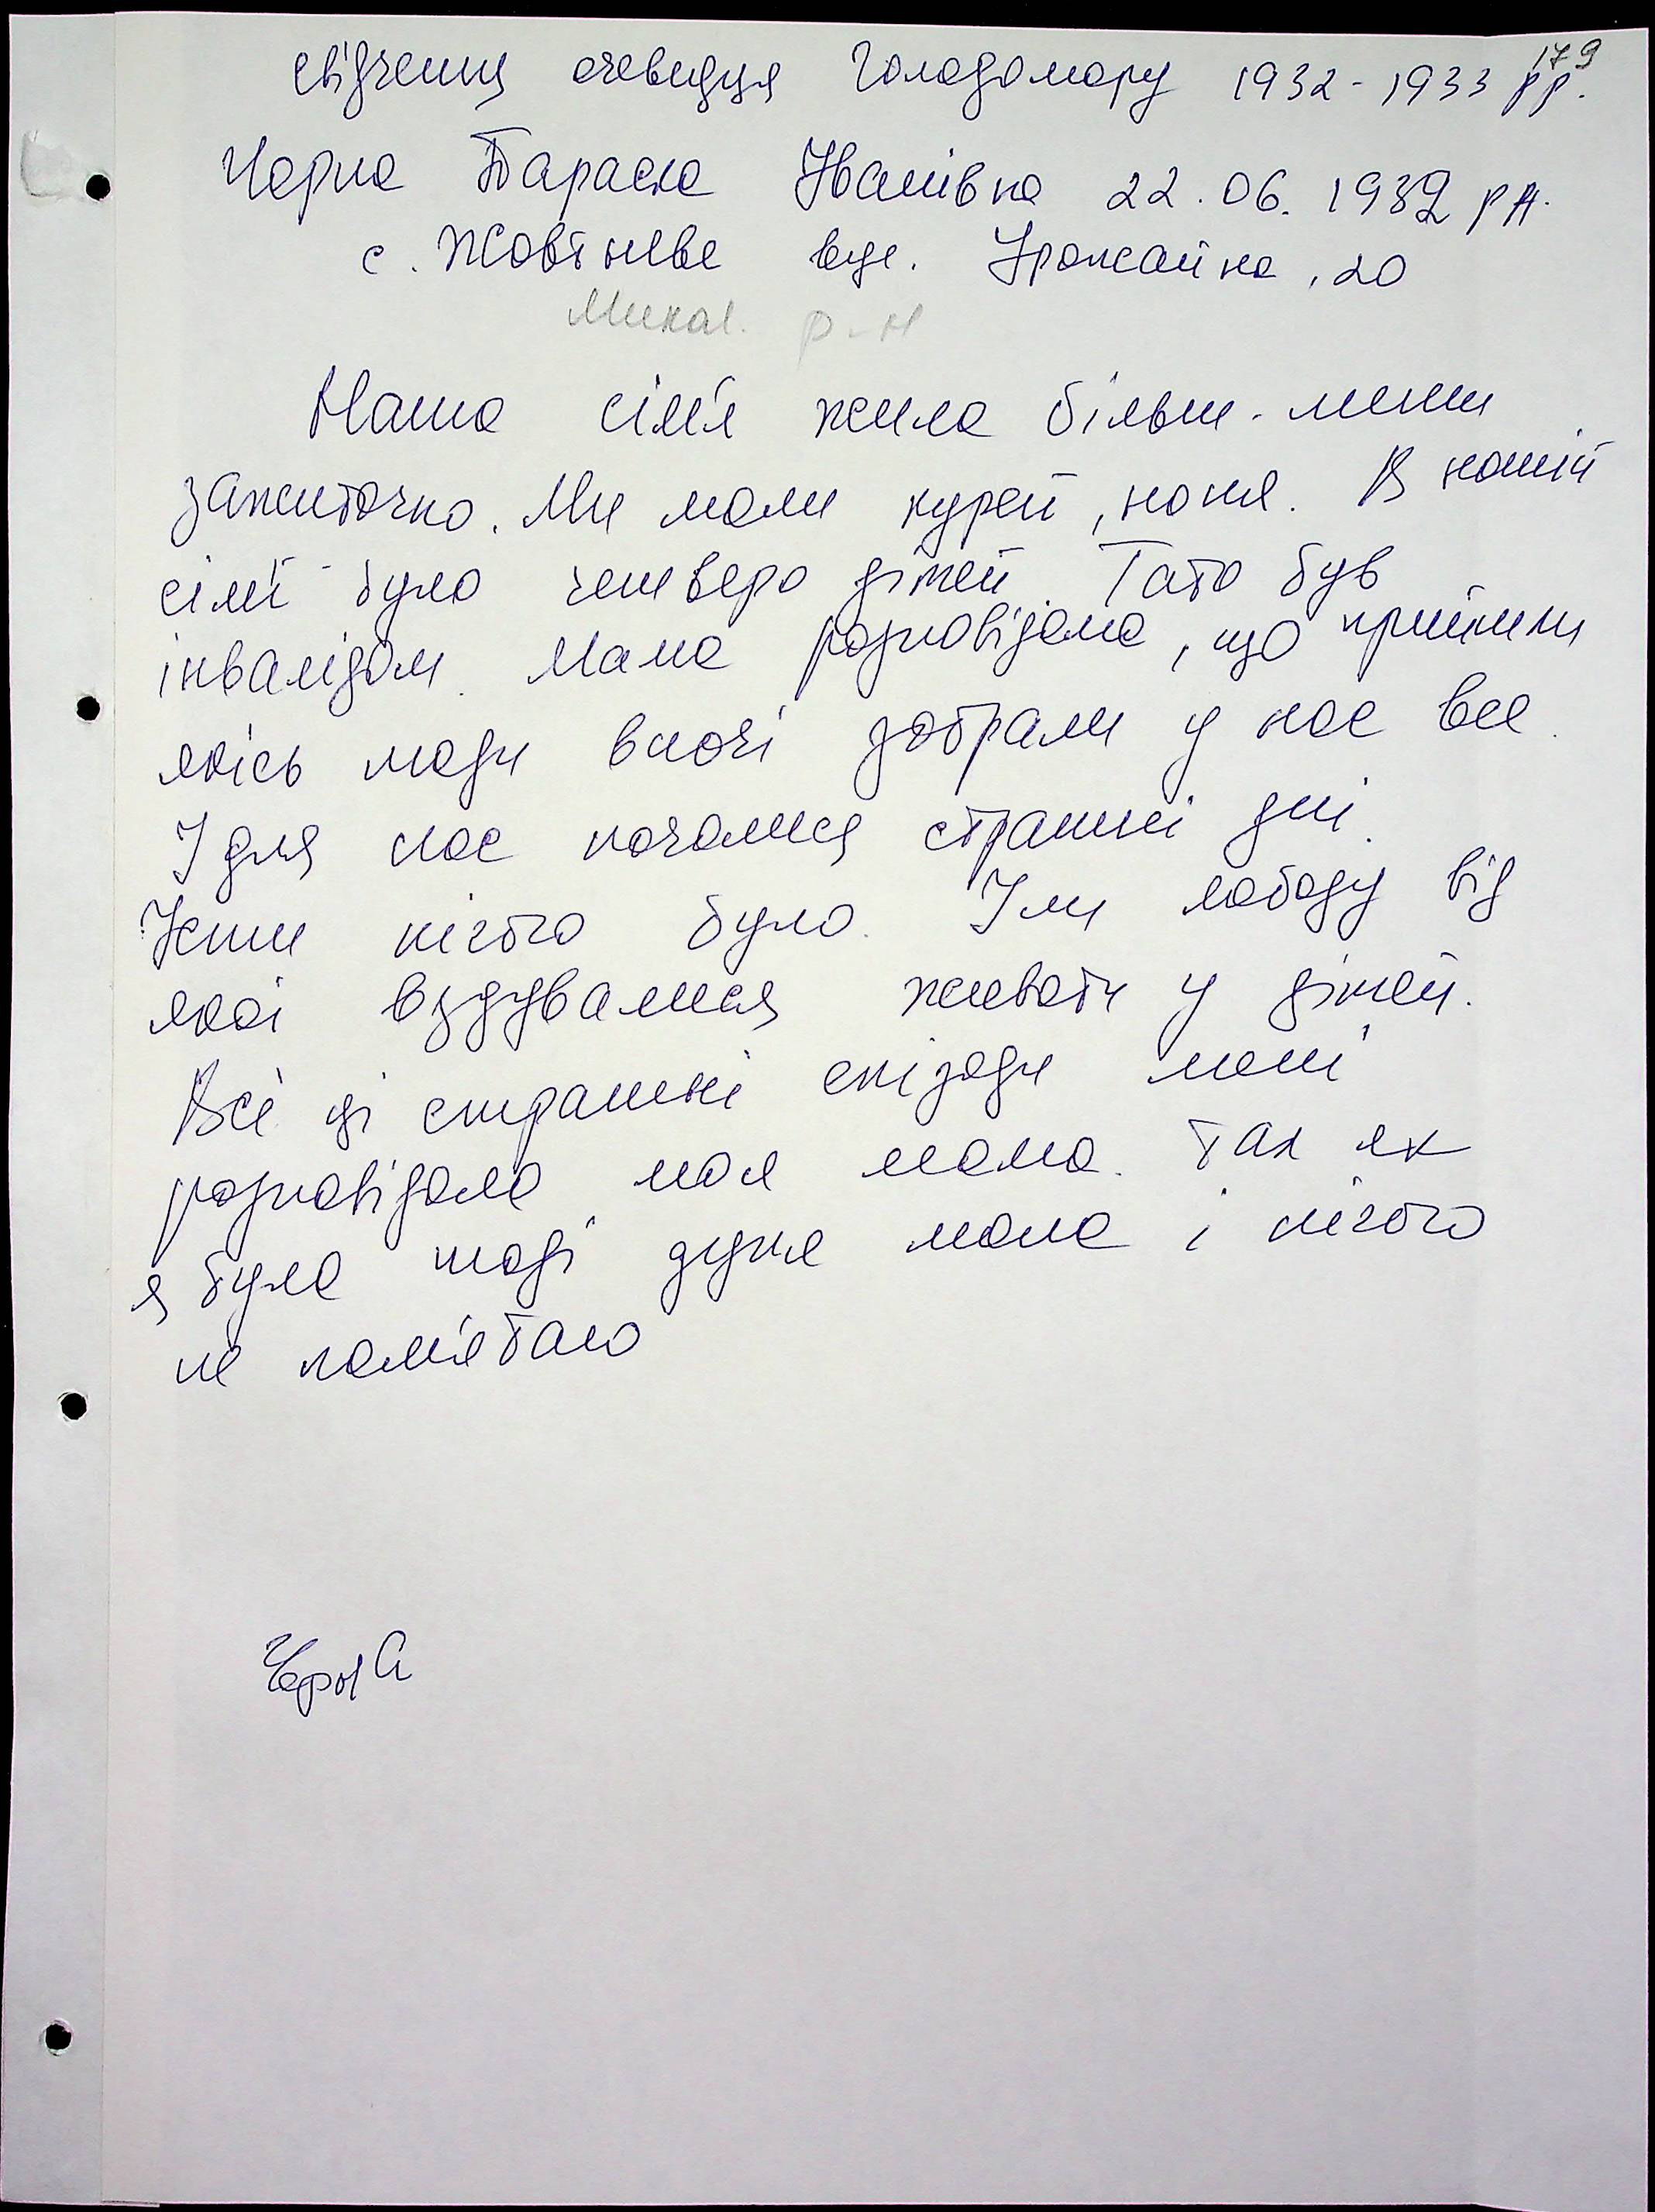 179
свідчення очевидця Голодомору 1932-1933 рр.
Чорна Параска Іванівна 22.06.1932 р н.
с. Жовтневе вул. Урожайна, 20
Микол. р-н
Наша сім'я жила більш-менш
заживточно. Ми мали курей, коня. В нашій
сім'ї було четверо дітей. Тато був
інвалідом. Мама розповідала, що прийшли
якісь люди вночі забрали у нас все.
І для нас почалися страшні дні.
Їсти нічого було. Їли лободу від
якої вздувалися животи у дітей.
Всі ці страшні епізоди мені
розповідала моя мама. Так як
я була тоді дуже мала і нічого
не пам'ятаю
Чорна